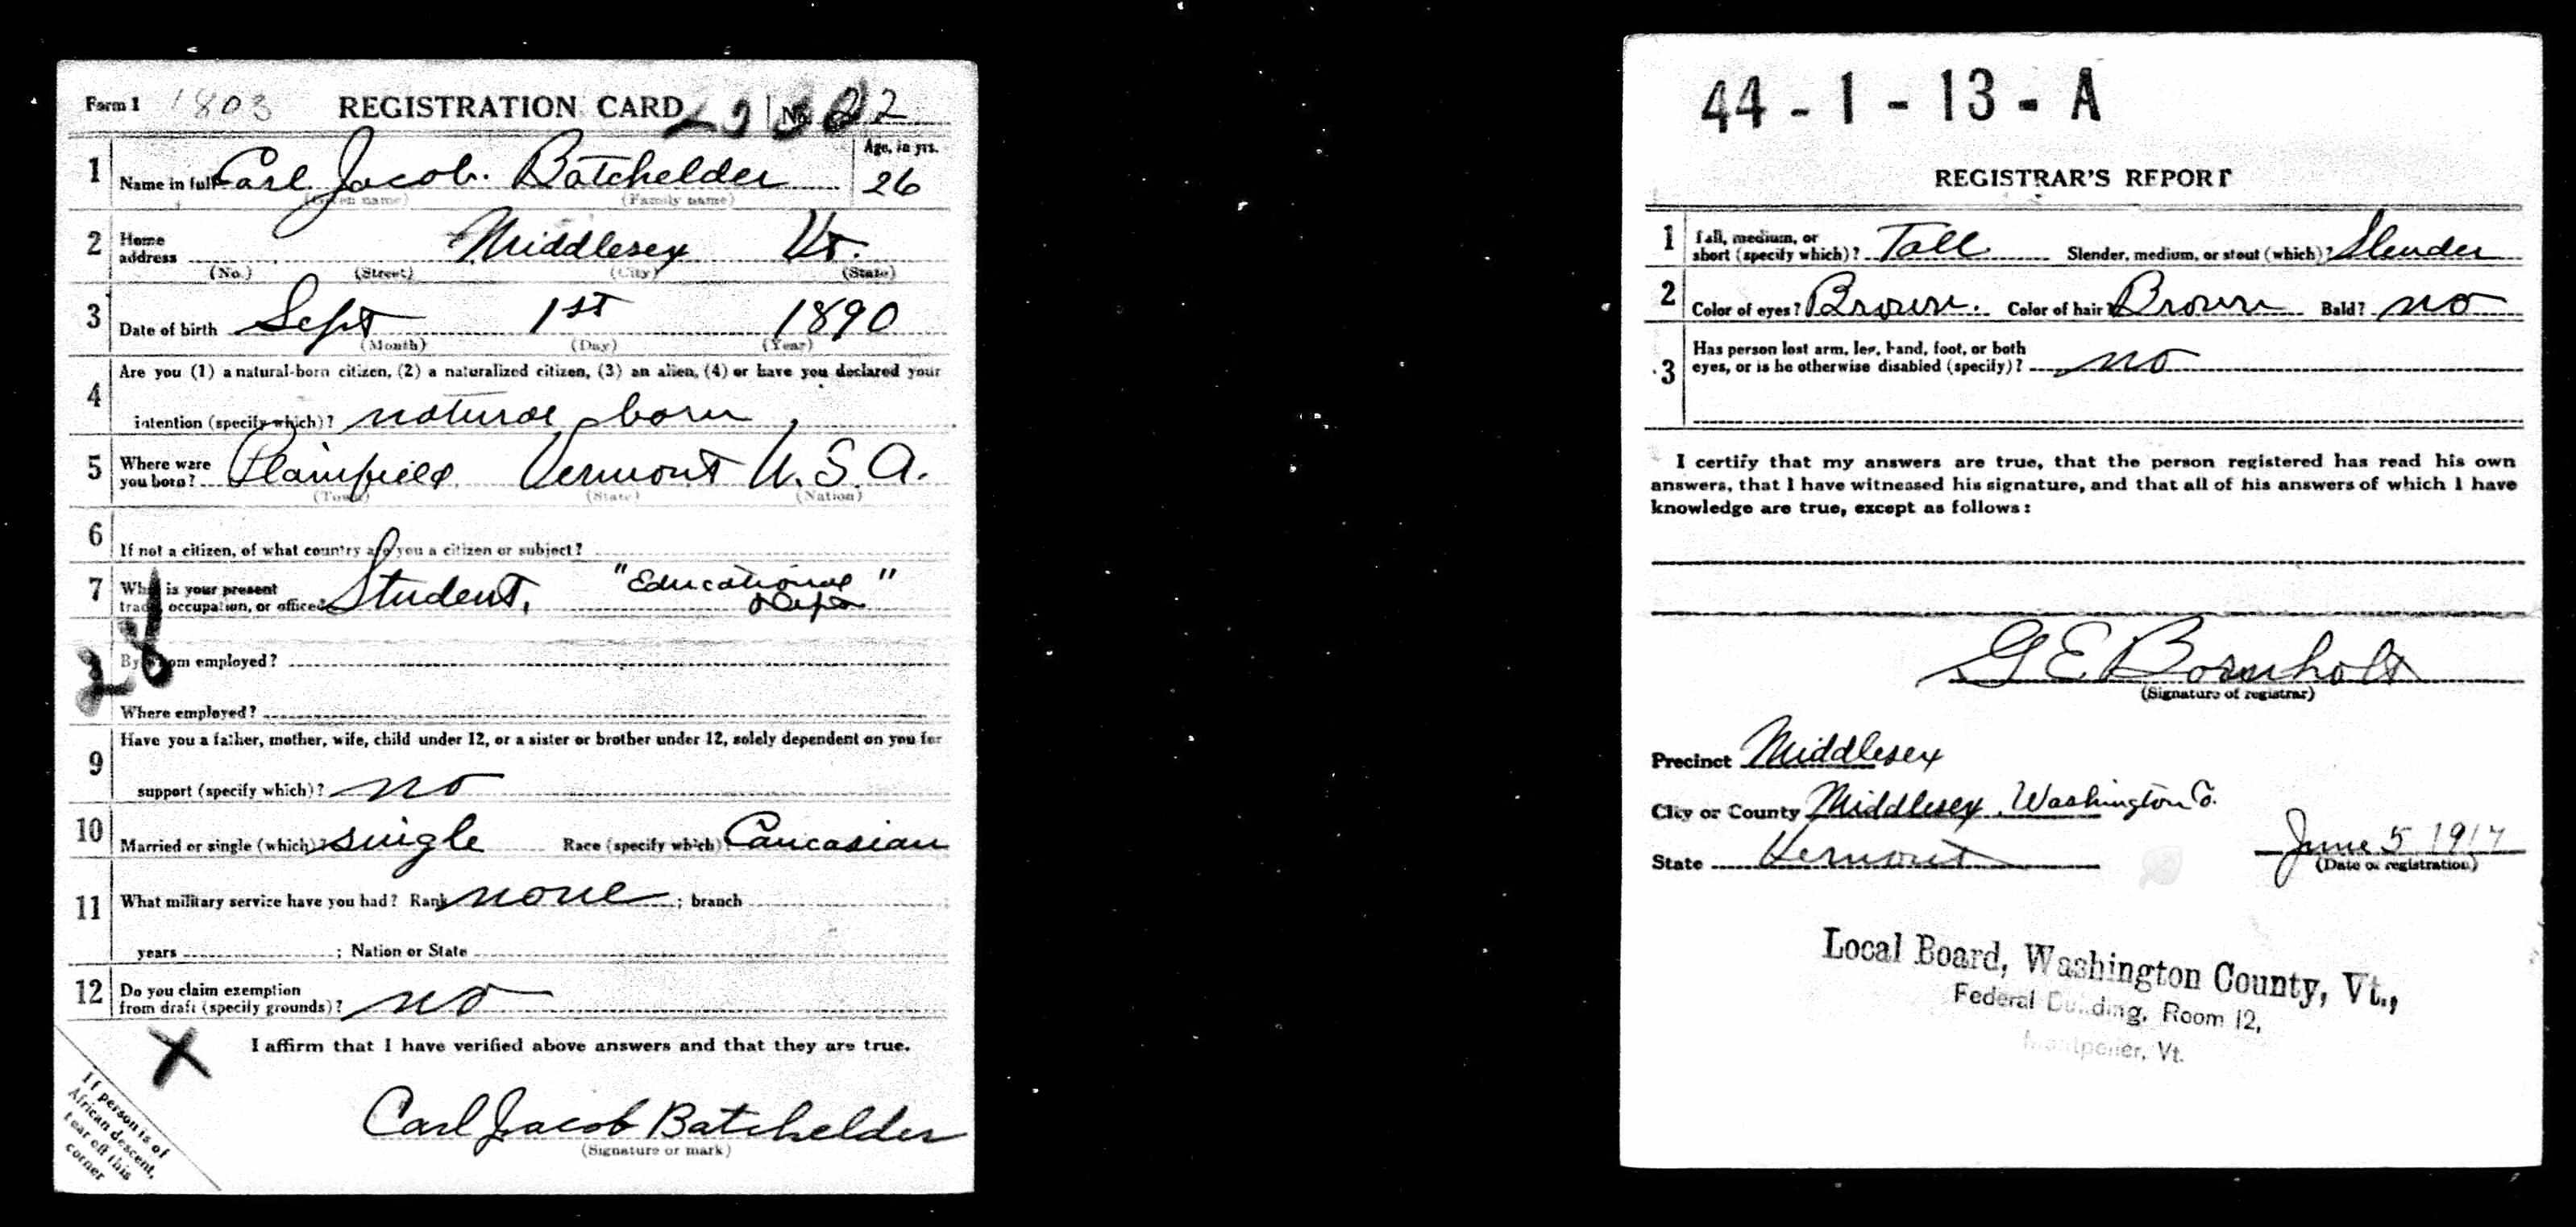 Form 1 1803 REGISTRATION CARD No. 22
1 Name in full Carl Jacob. Batchelder Age, in yrs. 26
(Given name) (Family name)
2 Home address Middlesex Vt.
(No.) (Street) (City) (State)
3 Date of birth Sept 1st 1890
(Month) (Day) (Year)
4 Are you (1) a natural-born citizen, (2) a naturalized citizen, (3) an alien, (4) or have you declared your
intention (specify which)? natural born
5 Where were you born? Plainfield Vermont U.S.A.
(Town) (State) (Nation)
6 If not a citizen, of what country are you a citizen or subject?
7 What is your present
trade, occupation, or office? Student, "Educational" Dept
28
By whom employed?
Where employed?
9 Have you a father, mother, wife, child under 12, or a sister or brother under 12, solely dependent on you for
support (specify which)? no
10 Married or single (which)? single Race (specify which)? Caucasian
11 What military service have you had? Rank none ; branch
years ; Nation or State
12 Do you claim exemption
from draft (specify grounds)? no
X I affirm that I have verified above answers and that they are true.
Carl Jacob Batchelder
(Signature or mark)
If person is of
African descent,
tear off this
corner
44-1-13-A
REGISTRAR'S REPORT
1 Tall, medium, or
short (specify which)? Tall Slender, medium, or stout (which)? Slender
2 Color of eyes? Brown. Color of hair? Brown Bald? no
3 Has person lost arm, leg, hand, foot, or both
eyes, or is he otherwise disabled (specify)? no
I certify that my answers are true, that the person registered has read his own
answers, that I have witnessed his signature, and that all of his answers of which I have
knowledge are true, except as follows:
G E Bornholt
(Signature of registrar)
Precinct Middlesex
City or County Middlesex, Washington Co.
State Vermont June 5 1917
(Date of registration)
Local Board, Washington County, Vt.,
Federal Building, Room 12,
Montpelier, Vt.